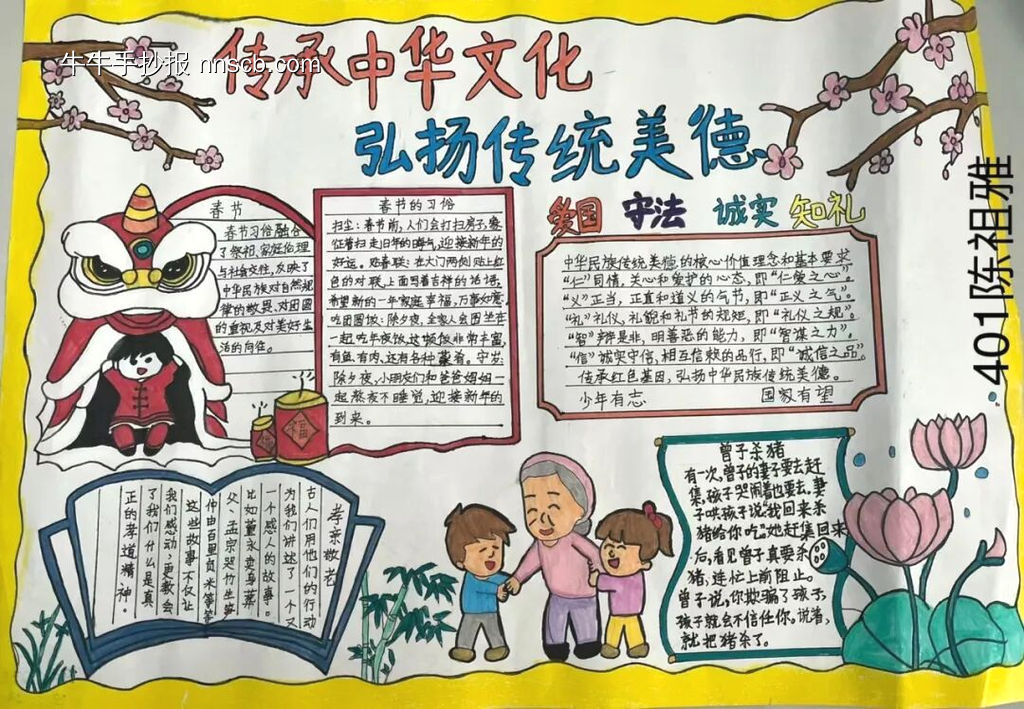 牛牛手抄报 nnscb.com
传承中华文化
弘扬传统美德
春节
春节习俗融合
了祭祖、家庭伦理
与社会交往,反映了
中华民族对自然规
律的敬畏、对团圆
的重视及对美好生
活的向往。
春节的习俗
扫尘:春节前,人们会打扫房子,寓
征着扫走旧年的晦气,迎接新年的
好运。贴春联:在大门两侧贴上红
色的对联,上面写着吉祥的话语,
希望新的一年家庭幸福,万事如意。
吃团圆饭:除夕夜,全家人会围坐在
一起吃年夜饭,这顿饭非常丰富,
有鱼、有肉,还有各种菜肴。守岁:
除夕夜,小朋友们和爸爸妈妈一
起熬夜不睡觉,迎接新年的
到来。
爱国 守法 诚实 知礼
中华民族传统美德的核心价值理念和基本要求
“仁”同情,关心和爱护的心态,即“仁爱之心”。
“义”正当,正直和道义的气节,即“正义之气”。
“礼”礼仪,礼貌和礼节的规矩,即“礼仪之规”。
“智”辨是非,明善恶的能力,即“智谋之力”。
“信”诚实守信,相互信赖的品行,即“诚信之品”。
传承红色基因,弘扬中华民族传统美德。
少年有志 国家有望
401陈祖雅
福
孝亲敬老
古人们用他们的行动
为我们讲述了一个又
一个感人的故事。
比如董永卖身葬
父、孟宗哭竹生笋
仲由百里负米等等
这些故事不仅让
我们感动,更教会
了我们什么是真
正的孝道精神。
曾子杀猪
有一次,曾子的妻子要去赶
集,孩子哭闹着也要去。妻
子哄孩子说“我回来杀
猪给你吃”她赶集回来
后,看见曾子真要杀
猪,连忙上前阻止。
曾子说,你欺骗了孩子,
孩子就会不信任你。说着,
就把猪杀了。